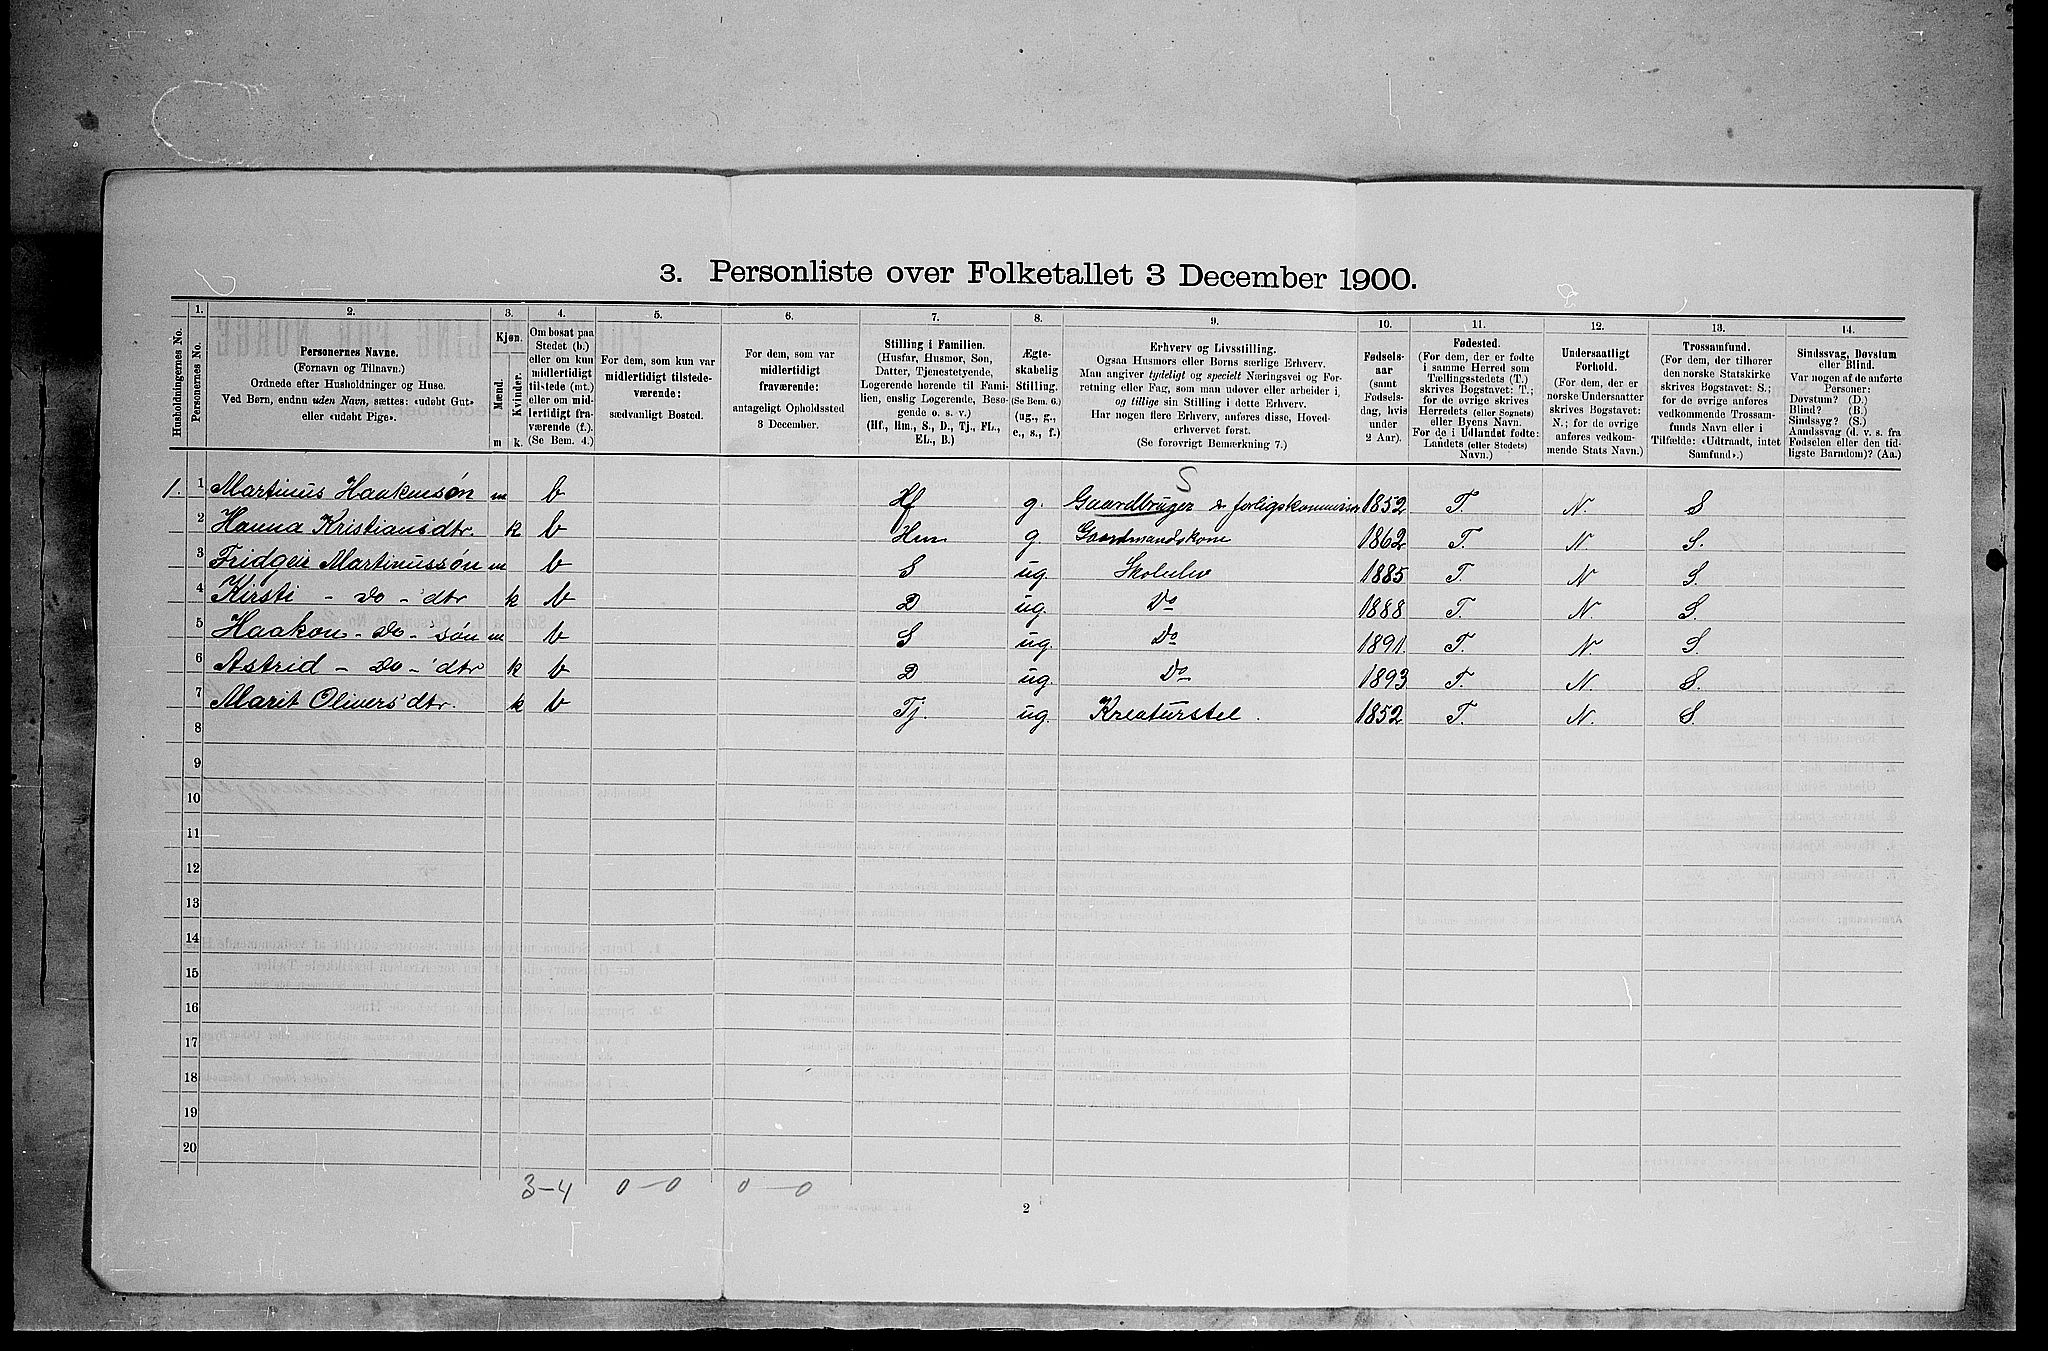 3. Personliste over Folketallet 3 December 1900.
1. 2. 3. 4. 5. 6. 7. 8. 9. 10. 11. 12. 13. 14.
Husholdningernes No.
Personernes No.
Personernes Navne.
(Fornavn og Tilnavn.)
Ordnede efter Husholdninger og Huse.
Ved Børn, endnu uden Navn, sættes: «udøbt Gut»
eller «udøbt Pige».
Kjøn.
Mænd.
Kvinder.
m k.
Om bosat paa
Stedet (b.)
eller om kun
midlertidigt
tilstede (mt.)
eller om mid-
lertidigt fra-
værende (f.).
(Se Bem. 4.)
For dem, som kun var
midlertidigt tilstede-
værende:
sædvanligt Bosted.
For dem, som var
midlertidigt
fraværende:
antageligt Opholdssted
3 December.
Stilling i Familien.
(Husfar, Husmor, Søn,
Datter, Tjenestetyende,
Logerende hørende til Fami-
lien, enslig Logerende, Besø-
gende o. s. v.)
(Hf., Hm., S., D., Tj., FL.,
EL., B.)
Ægte-
skabelig
Stilling.
(Se Bem. 6.)
(ug., g.,
e., s., f.)
Erhverv og Livsstilling.
Ogsaa Husmors eller Børns særlige Erhverv.
Man angiver tydeligt og specielt Næringsvei og For-
retning eller Fag, som man udøver eller arbeider i,
og tillige sin Stilling i dette Erhverv.
Har nogen flere Erhverv, anføres disse, Hoved-
erhvervet først.
(Se forøvrigt Bemærkning 7.)
Fødsels-
aar
(samt
Fødsels-
dag, hvis
under
2 Aar).
Fødested.
(For dem, der er fødte
i samme Herred som
Tællingsstedets (T.)
skrives Bogstavet: T.;
for de øvrige skrives
Herredets (eller Sognets)
eller Byens Navn.
For de i Udlandet fødte:
Landets (eller Stedets)
Navn.)
Undersaatligt
Forhold.
(For dem, der er
norske Undersaatter
skrives Bogstavet:
N.; for de øvrige
anføres vedkom-
mende Stats Navn.)
Trossamfund.
(For dem, der tilhører
den norske Statskirke
skrives Bogstavet: S.;
for de øvrige anføres
vedkommende Trossam-
funds Navn eller i
Tilfælde: «Udtraadt, intet
Samfund».)
Sindssvag, Døvstum
eller Blind.
Var nogen af de anførte
Personer:
Døvstum? (D.)
Blind? (B.)
Sindssyg? (S.)
Aandssvag (d. v. s. fra
Fødselen eller den tid-
ligste Barndom)? (Aa.)
S
1. 1 Martinus Haakensøn m b Hf g. Gaardbruger & forligskommissær 1852 T. N. S
2 Hanna Kristiansdtr. k b Hm g. Gaardmandskone 1862 T. N. S.
3 Fridgeir Martinussøn m b S ug. Skoleelev 1885 T. N S.
4 Kirsti - Do - dtr k b D ug. Do 1888 T. N. S.
5 Haakon - Do - søn m b S ug. Do 1891. T. N S.
6 Astrid - Do - dtr k b D ug. Do 1893 T. N. S.
7 Marit Olivers'dtr. k b Tj. ug. Kreaturstel. 1852 T. N. S.
8
9
10
11
12
13
14
15
16
17
18
19
20
3-4 0-0 0-0
2